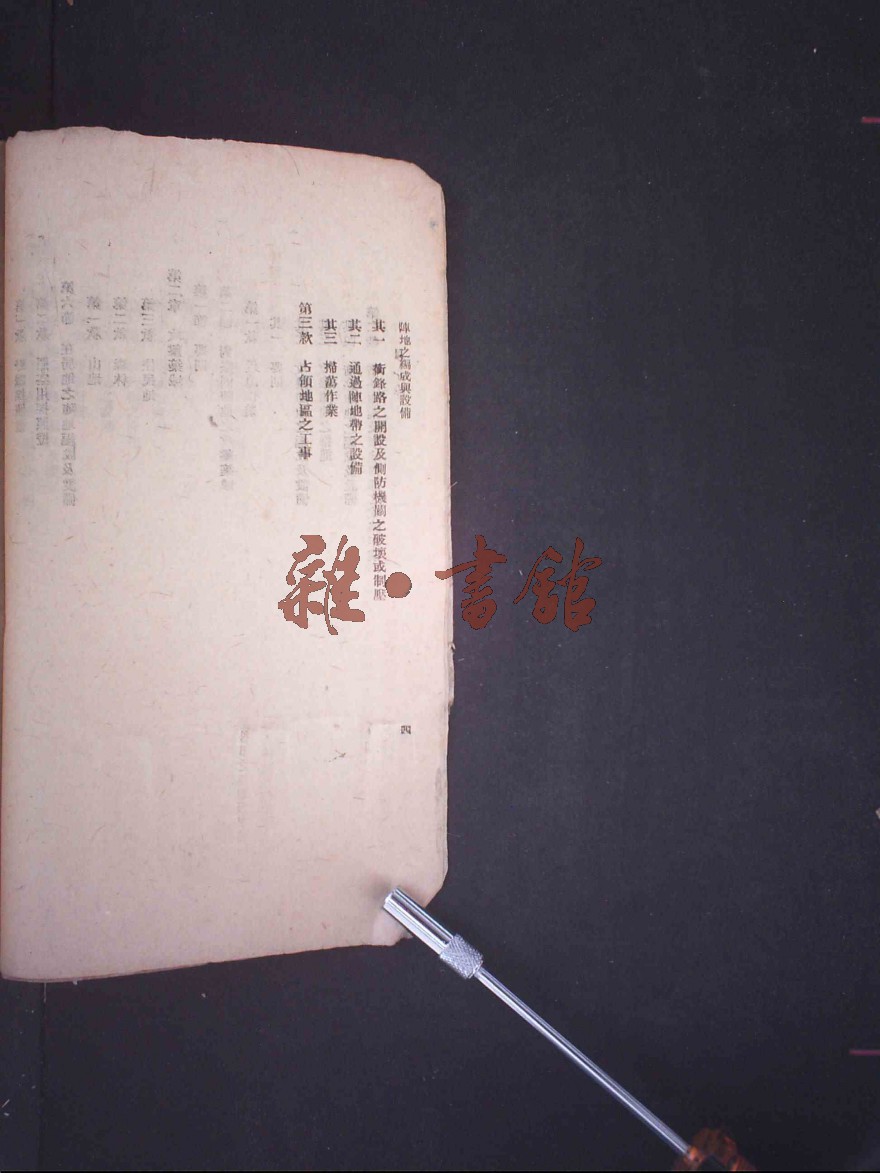 陣地之編成與設備
其一　衝鋒路之開設及側防機關之破壞或制壓
其二　通過陣地帶之設備
其三　掃蕩作業
第三款　占領地區之工事
四
雜·書館